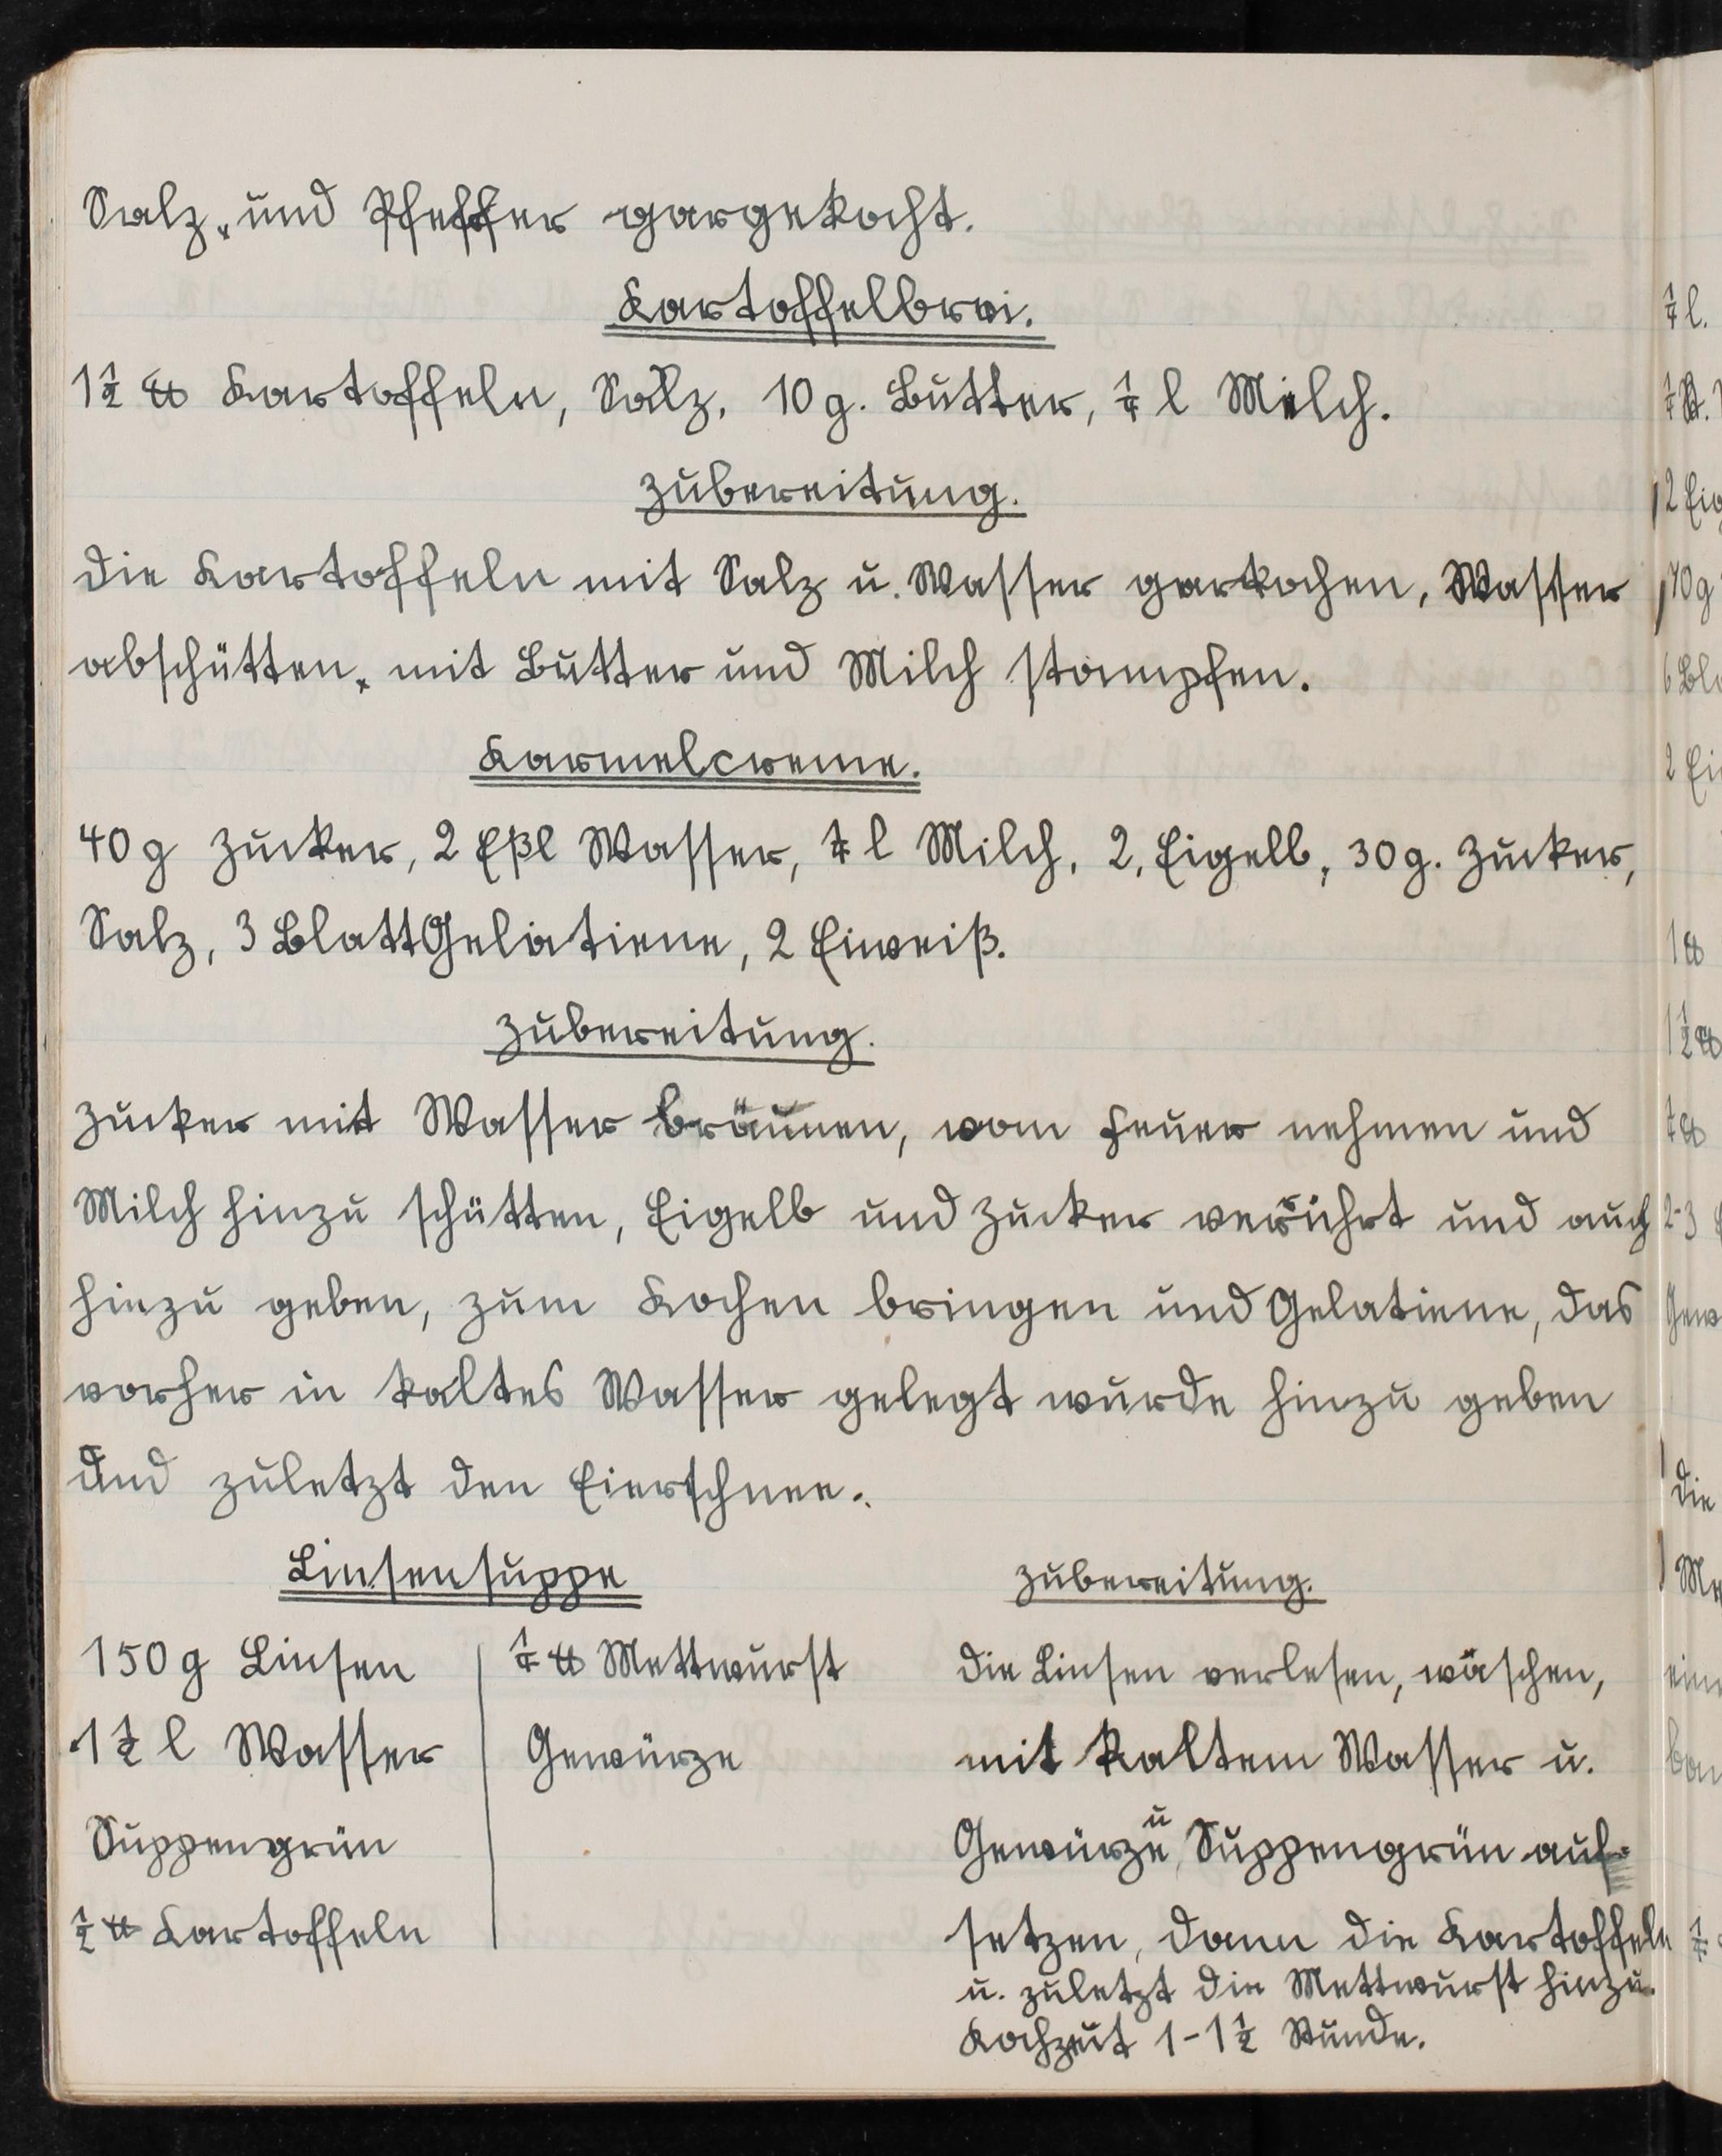 Salz, und Pfeffer gargekocht.
Kartoffelbrei.
1½ ℔ Kartoffeln, Salz, 10 g. Butter, ¼ l Milch.
Zubereitung.
Die Kartoffeln mit Salz u. Wasser garkochen, Wasser
abschütten, mit Butter und Milch stampfen.
Karmelcreme.
40 g Zucker, 2 Eßl Wasser, ¼ l Milch, 2, Eigelb, 30 g. Zucker,
Salz, 3 Blatt Gelatiene, 2 Eiweiß.
Zubereitung.
Zucker mit Wasser bräunen, vom Feuer nehmen und
Milch hinzu schütten, Eigelb und Zucker verührt und auch
hinzu geben, zum Kochen bringen und Gelatiene, das
vorher in kaltes Wasser gelegt wurde hinzu geben
und zuletzt den Eierschnee.
Linsensuppe
150 g Linsen
1½ l Wasser
Suppengrün
½ ℔ Kartoffeln
¼ ℔ Mettwurst
Gewürze
Zubereitung.
Die Linsen verlesen, wäschen,
mit kaltem Wasser u.
Gewürze u Suppengrün auf-
setzen, dann die Kartoffeln
u. zuletzt die Mettwurst hinzu.
Kochzeit 1-1½ Stunde.
¼ l.
2 Eig
70 g
6 Bla
2 Ei
1 ℔
1½ ℔
¼ ℔
2-3
Gew
Die
Me
ein